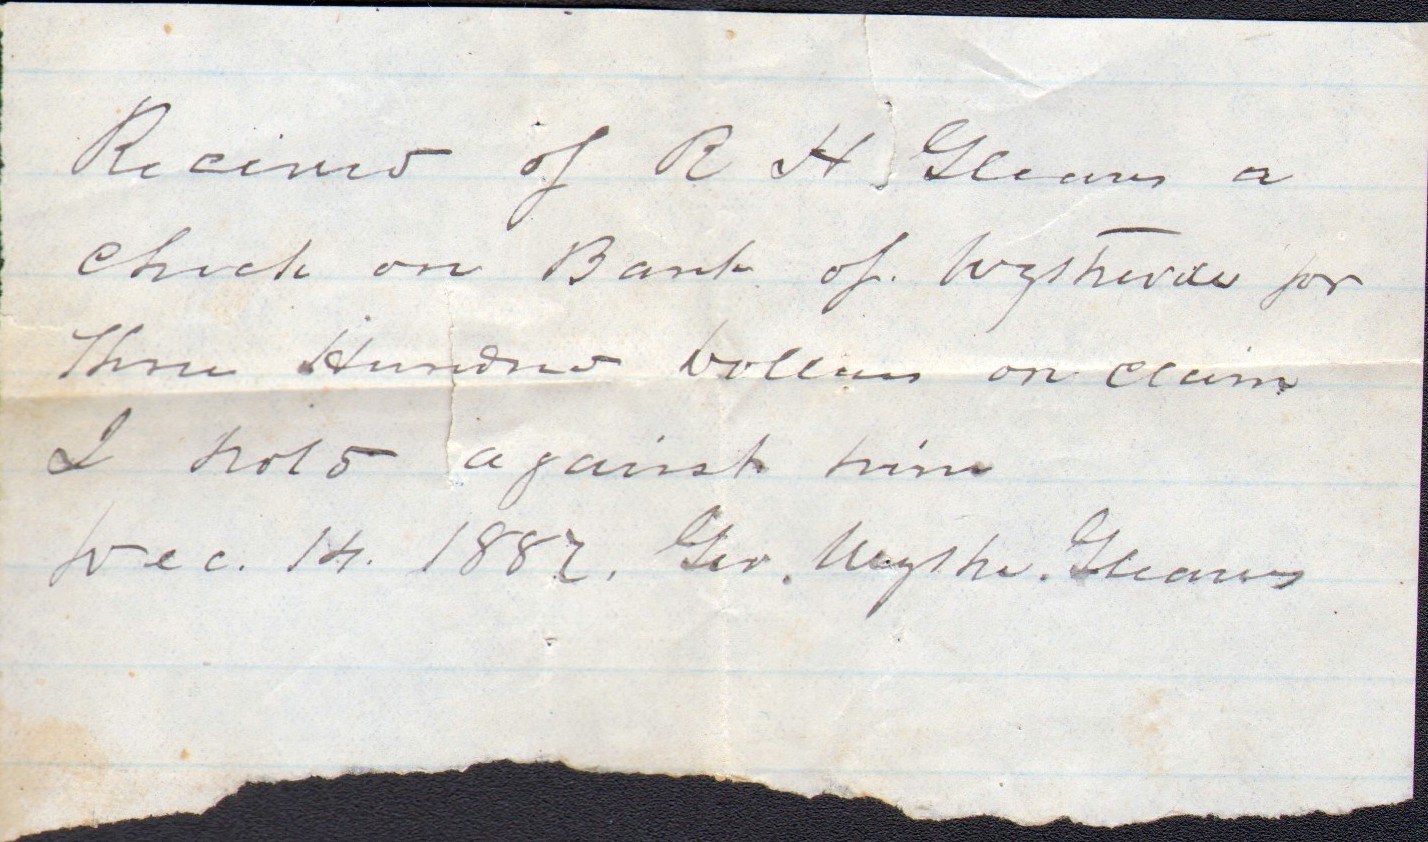 Received of R H Gleaves a
check on Bank of Wytheville for
Three Hundred Dollars on claim
I hold against him
Dec. 14. 1887. Geo. Wythe. Gleaves